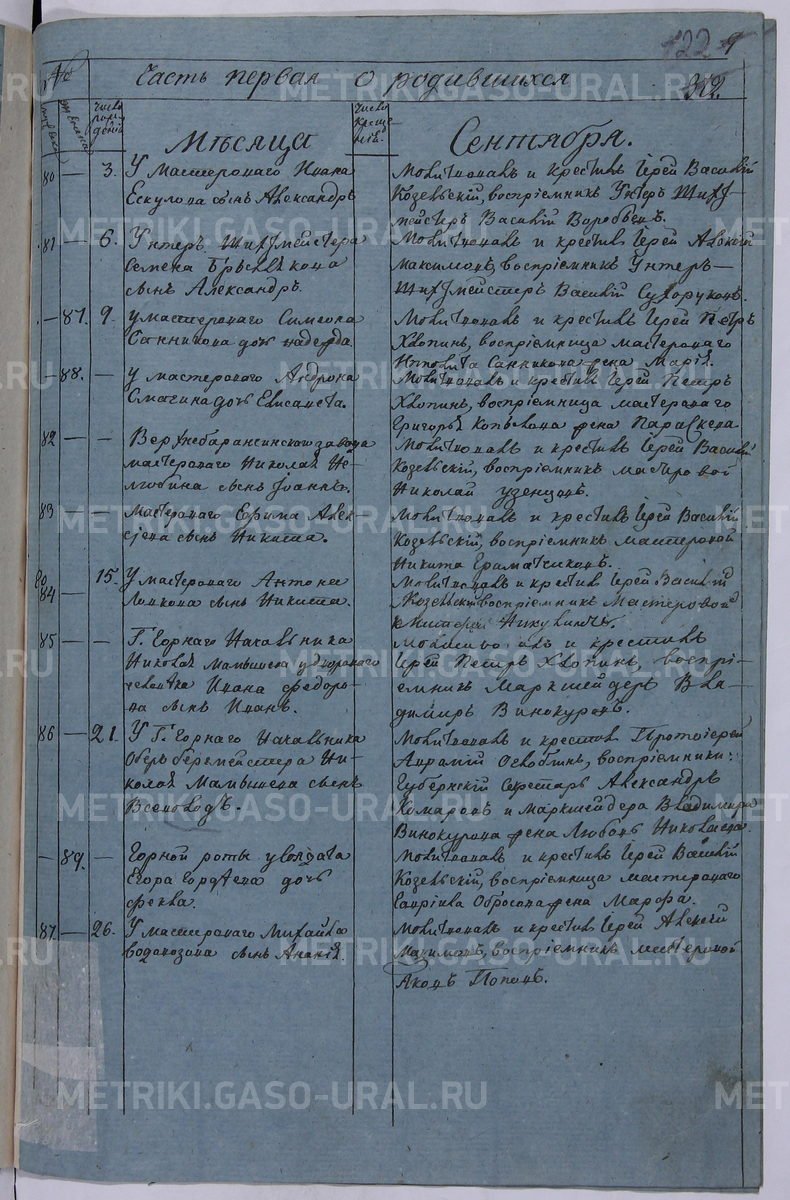 122
Часть первая о родившихся
312.
число рожденій
число крещенія.
Мѣсяца Сентября.
80 — 3. У Мастероваго Ивана
Ескулова сынъ Александръ
Молитвовалъ и крестилъ Іерей Василій
Козельскій, воспріемникъ Унтеръ Шихт-
мейстеръ Василій Воробьевъ.
81 — 6. Унтеръ Шихтмейстера
Семена
сынъ Александръ.
Молитвовалъ и крестилъ Іерей Алексій
Максимовъ, воспріемникъ Унтеръ—
Шихтмейстеръ Василій Сухоруковъ.
— 87. 9. У мастероваго Симеона
Санникова дочь надежда
Молитвовалъ и крестилъ Іерей Петръ
Хлопинъ, воспріемница мастероваго
Иполита Санникова жена Марія.
— 88. — У мастероваго Андрона
Смагина дочь Елисавета.
Молитвовалъ и крестилъ Іерей Петръ
Хлопинъ, воспріемница мастероваго
Григорья Копылова жена Параскева
82 — — Верхнебаранчинскаго завода
мастероваго Николая
сынъ Іоаннъ.
Молитвовалъ и крестилъ Іерей Василій
Козельскій, воспріемникъ мастеровой
Николай узенцовъ.
83 — — Мастероваго Ефима Алек-
сѣева сынъ Никита.
Молитвовалъ и крестилъ Іерей Василій
Козельскій, воспріемникъ мастеровой
Никита Граматчиковъ.
84 — 15. У мастероваго Антона
сынъ Никита.
Молитвовалъ и крестилъ Іерей Василій
Козельскій воспріемникъ Мастеровой
85 — — Г. Горнаго Начальника
Николая Малышева у двороваго
человѣка Ивана Федоро-
ва сынъ Иванъ.
Молитвовалъ и крестилъ
Іерей Петръ Хлопинъ, воспрі-
емникъ Маркшейдеръ Вла-
димиръ Винокуровъ.
86 — 21. У Г. Горнаго Начальника
Оберъ берггмейстера Ни-
колая Малышева сынъ
Всеволодъ.
Молитвовалъ и крестилъ Протоіерей
Аврамій Оглоблинъ, воспріемники:
Губернскій Секретарь Александръ
Комаровъ и Маркшейдера Владимира
Винокурова жена Любовь Николаева.
— 89. — Горной роты у солдата
Егора Гордѣева дочь
фекла.
Молитвовалъ и крестилъ Іерей Василій
Козельскій, воспріемница мастероваго
Гаврила Обросова жена Марфа.
87 — 26. У мастероваго Михайла
Водолазова сынъ Ананій.
Молитвовалъ и крестилъ Іерей Алексій
Максимовъ, воспріемникъ мастеровой
Яковъ Поповъ.
METRIKI.GASO-URAL.RU